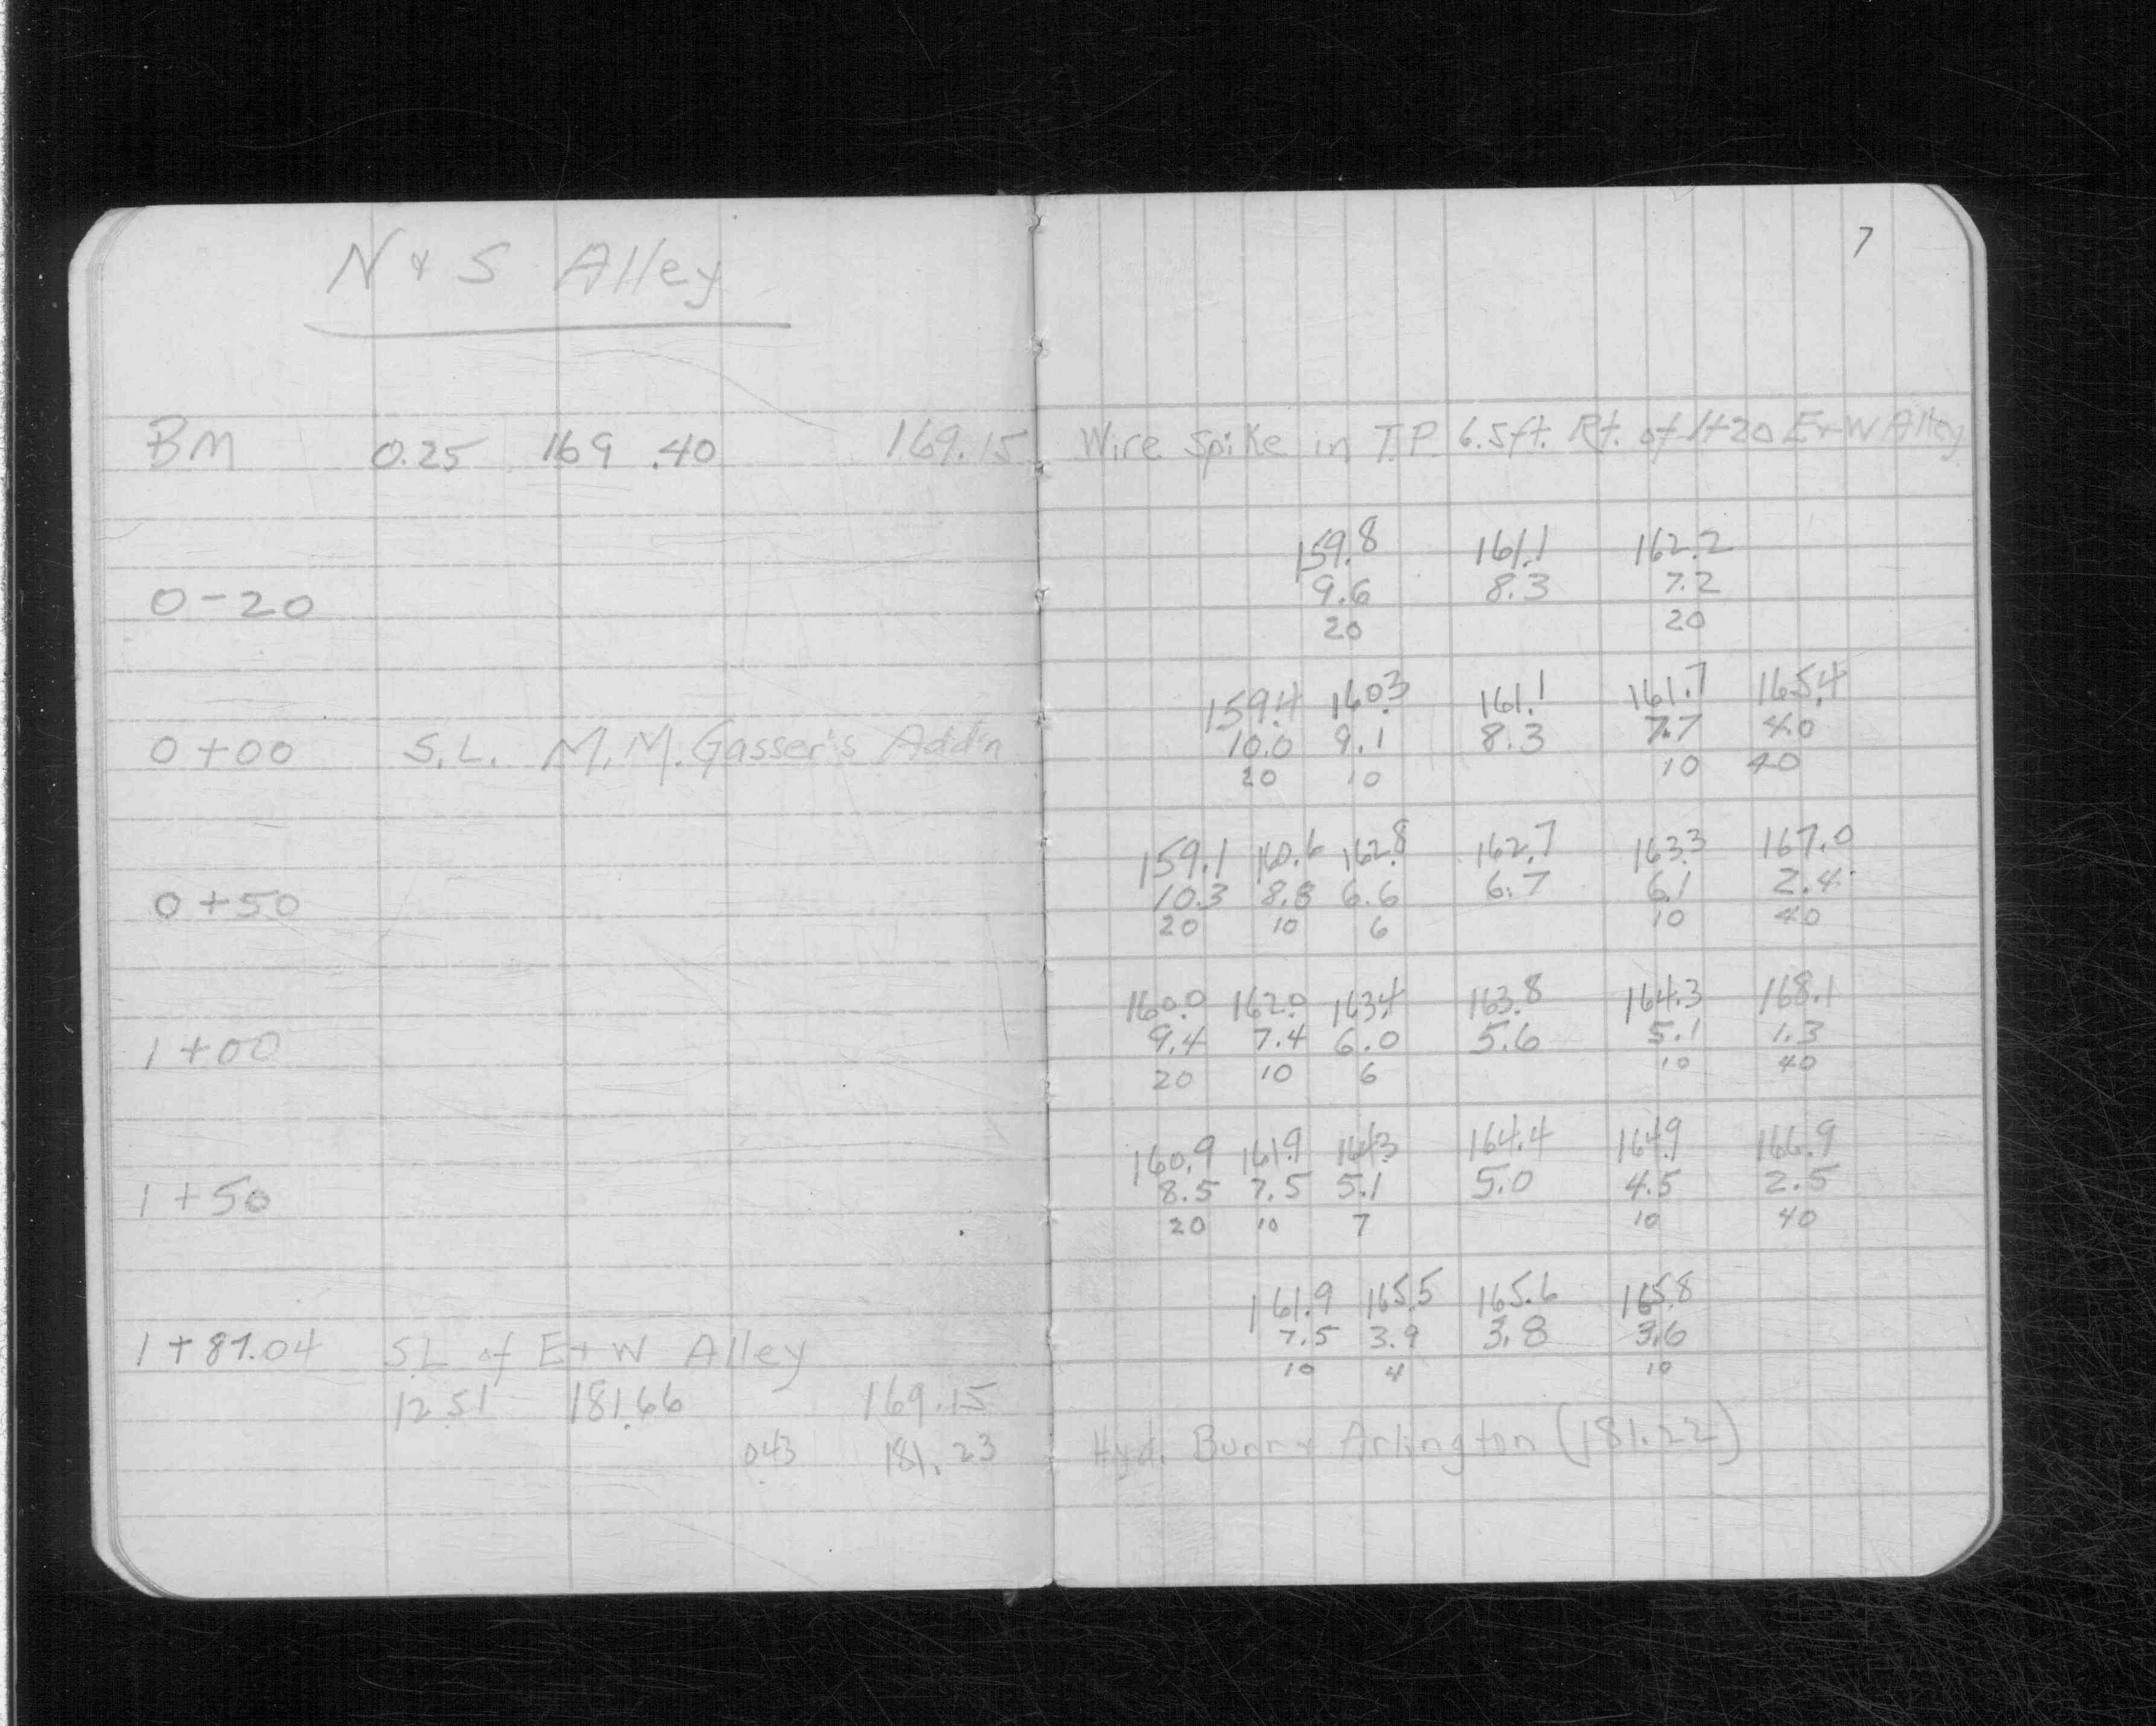 7
N & S Alley
BM 0.25 169.40 169.15 Wire Spike in T.P. 6.5ft. Rt. of 1+20 E+W Alley
159.8 161.1 162.2
0-20 9.6 8.3 7.2
20 20
159.4 160.3 161.1 161.7 165.4
0+00 S.L. M.M. Gasser's Add'n 10.0 9.1 8.3 7.7 4.0
20 10 10 40
159.1 160.6 162.8 162.7 163.3 167.0
0+50 10.3 8.8 6.6 6.7 6.1 2.4
20 10 6 10 40
160.0 162.0 163.4 163.8 164.3 168.1
1+00 9.4 7.4 6.0 5.6 5.1 1.3
20 10 6 10 40
160.9 161.9 164.3 164.4 164.9 166.9
1+50 8.5 7.5 5.1 5.0 4.5 2.5
20 10 7 10 40
161.9 165.5 165.6 165.8
1+87.04 S.L. of E+W Alley 7.5 3.9 3.8 3.6
10 4 10
12.51 181.66 169.15
0.43 181.23 Hyd. Burr & Arlington (181.22)